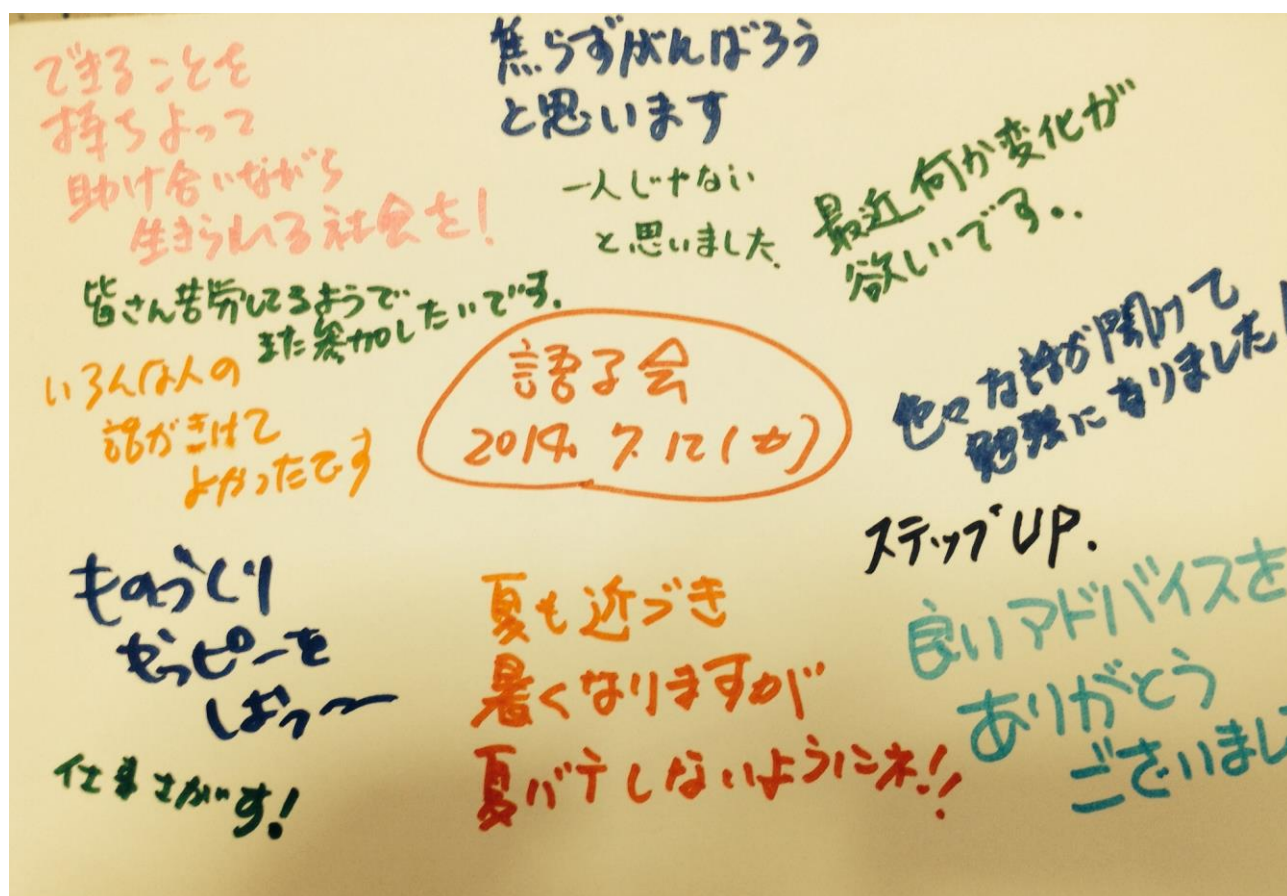 できることを
持ちよって
助け合いながら
生きられる社会を!
焦らずがんばろう
と思います
一人じゃない
と思いました
最近何か変化が
欲しいです..
皆さん苦労してるようで
また参加したいです.
いろんな人の
話がきけて
よかったです
語る会
2014. 7. 12(土)
色々な話が聞けて
勉強になりました!
ステップUP.
ものづくり
しまっ〜
夏も近づき
暑くなりますが
夏バテしないようにネ!!
良いアドバイスを
ありがとう
ございまし
仕事さがす!